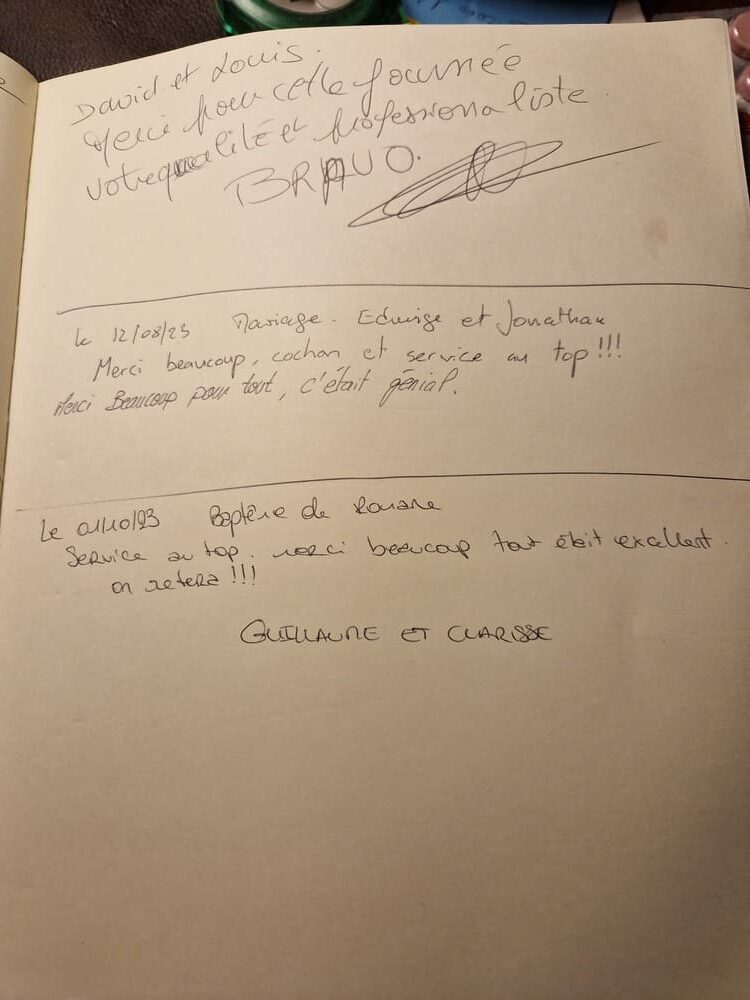 David et Louis.
Merci pour cette journée
votre qualité et professionaliste.
BRAVO.
le 12/08/23 Mariage. Edwige et Jonathan
Merci beaucoup, cochon et service au top!!!
Merci Beaucoup pour tout, c'était génial.
Le 01/10/23 Baptême de Romane
Service au top. merci beaucoup tout était excellent.
on refera!!!
GUILLAUME ET CLARISSE